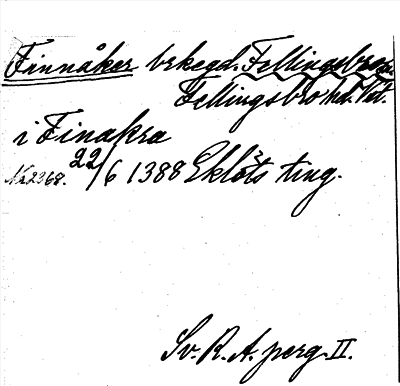 Finnåker brkegd. Fellingsbro sn.
Fellingsbro hd. Vst.
i Finakra
No 2268. 22/6 1388 Eklöts ting.
Sv. R. A. perg. II.